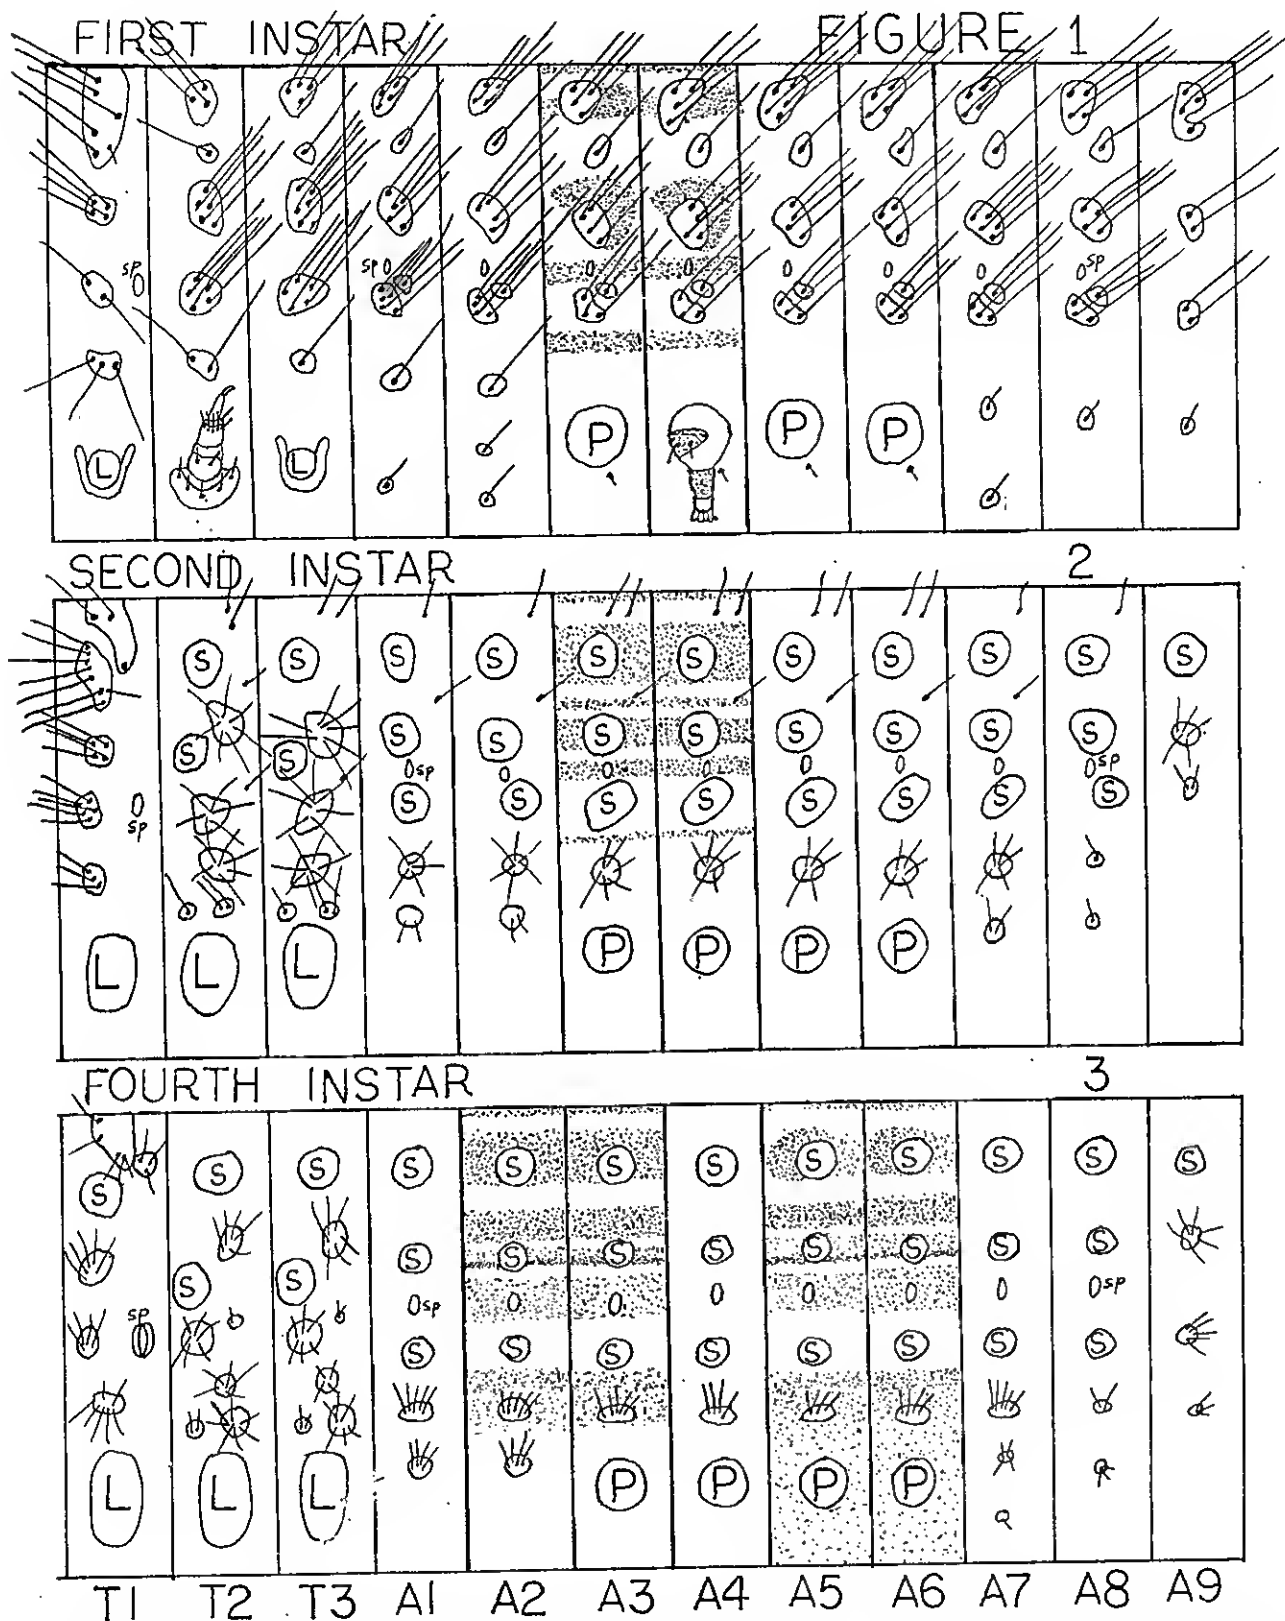 FIRST INSTAR FIGURE 1
sp sp sp
P P P
L L
SECOND INSTAR 2
S S S S S S S S S S S
S S S S S S S S S S
sp sp
S S S S S S S S
sp
L L L P P P P
FOURTH INSTAR 3
S S S S S S S S S S S
S
S S S S S S S S
S S
sp sp sp
S S S S S S S S
L L L P P P P
T1 T2 T3 A1 A2 A3 A4 A5 A6 A7 A8 A9